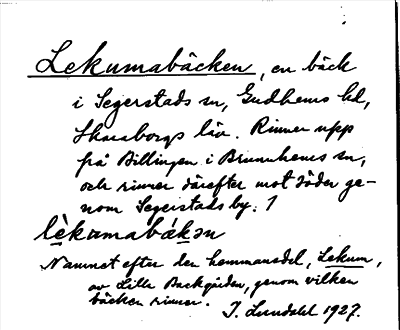 Lekumabäcken, en bäck
i Segerstads sn, Gudhems hd,
Skaraborgs län. Rinner upp
på Billingen i Brunnhems sn,
och rinner därefter mot söder ge-
nom Segerstads by. 1
lèkumabákən
Namnet efter den hemmansdel, Lekum,
av Lilla Backgården, genom vilken
bäcken rinner.
J. Lundahl 1927.